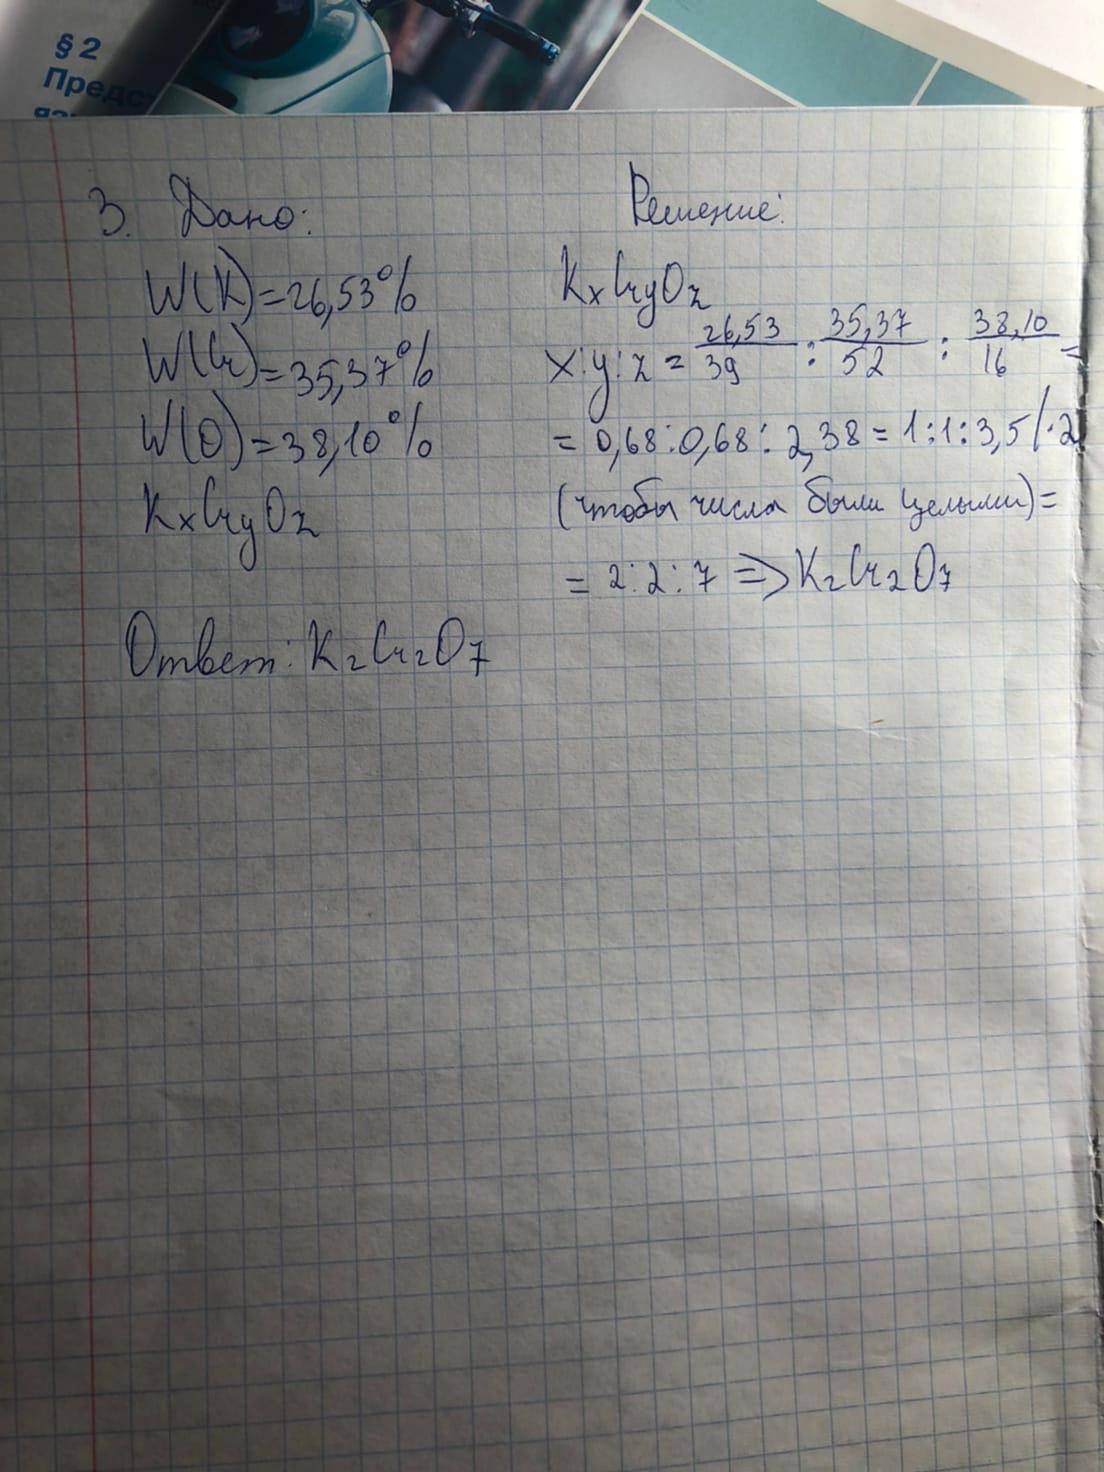 § 2
Предс
яз
3. Дано:
W(K)=26,53%
W(Cr)=35,37%
W(O)=38,10%
KxCryOz
Решение:
KxCryOz
x:y:z = 26,53/39 : 35,37/52 : 38,10/16 =
= 0,68:0,68:2,38 = 1:1:3,5/·2
(чтобы числа были целыми)=
= 2:2:7 => K2Cr2O7
Ответ: K2Cr2O7